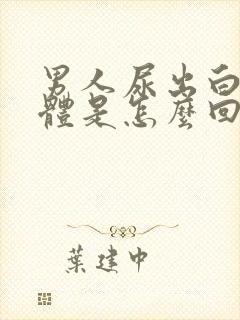 男人尿出白
體是怎麼回
葉建中